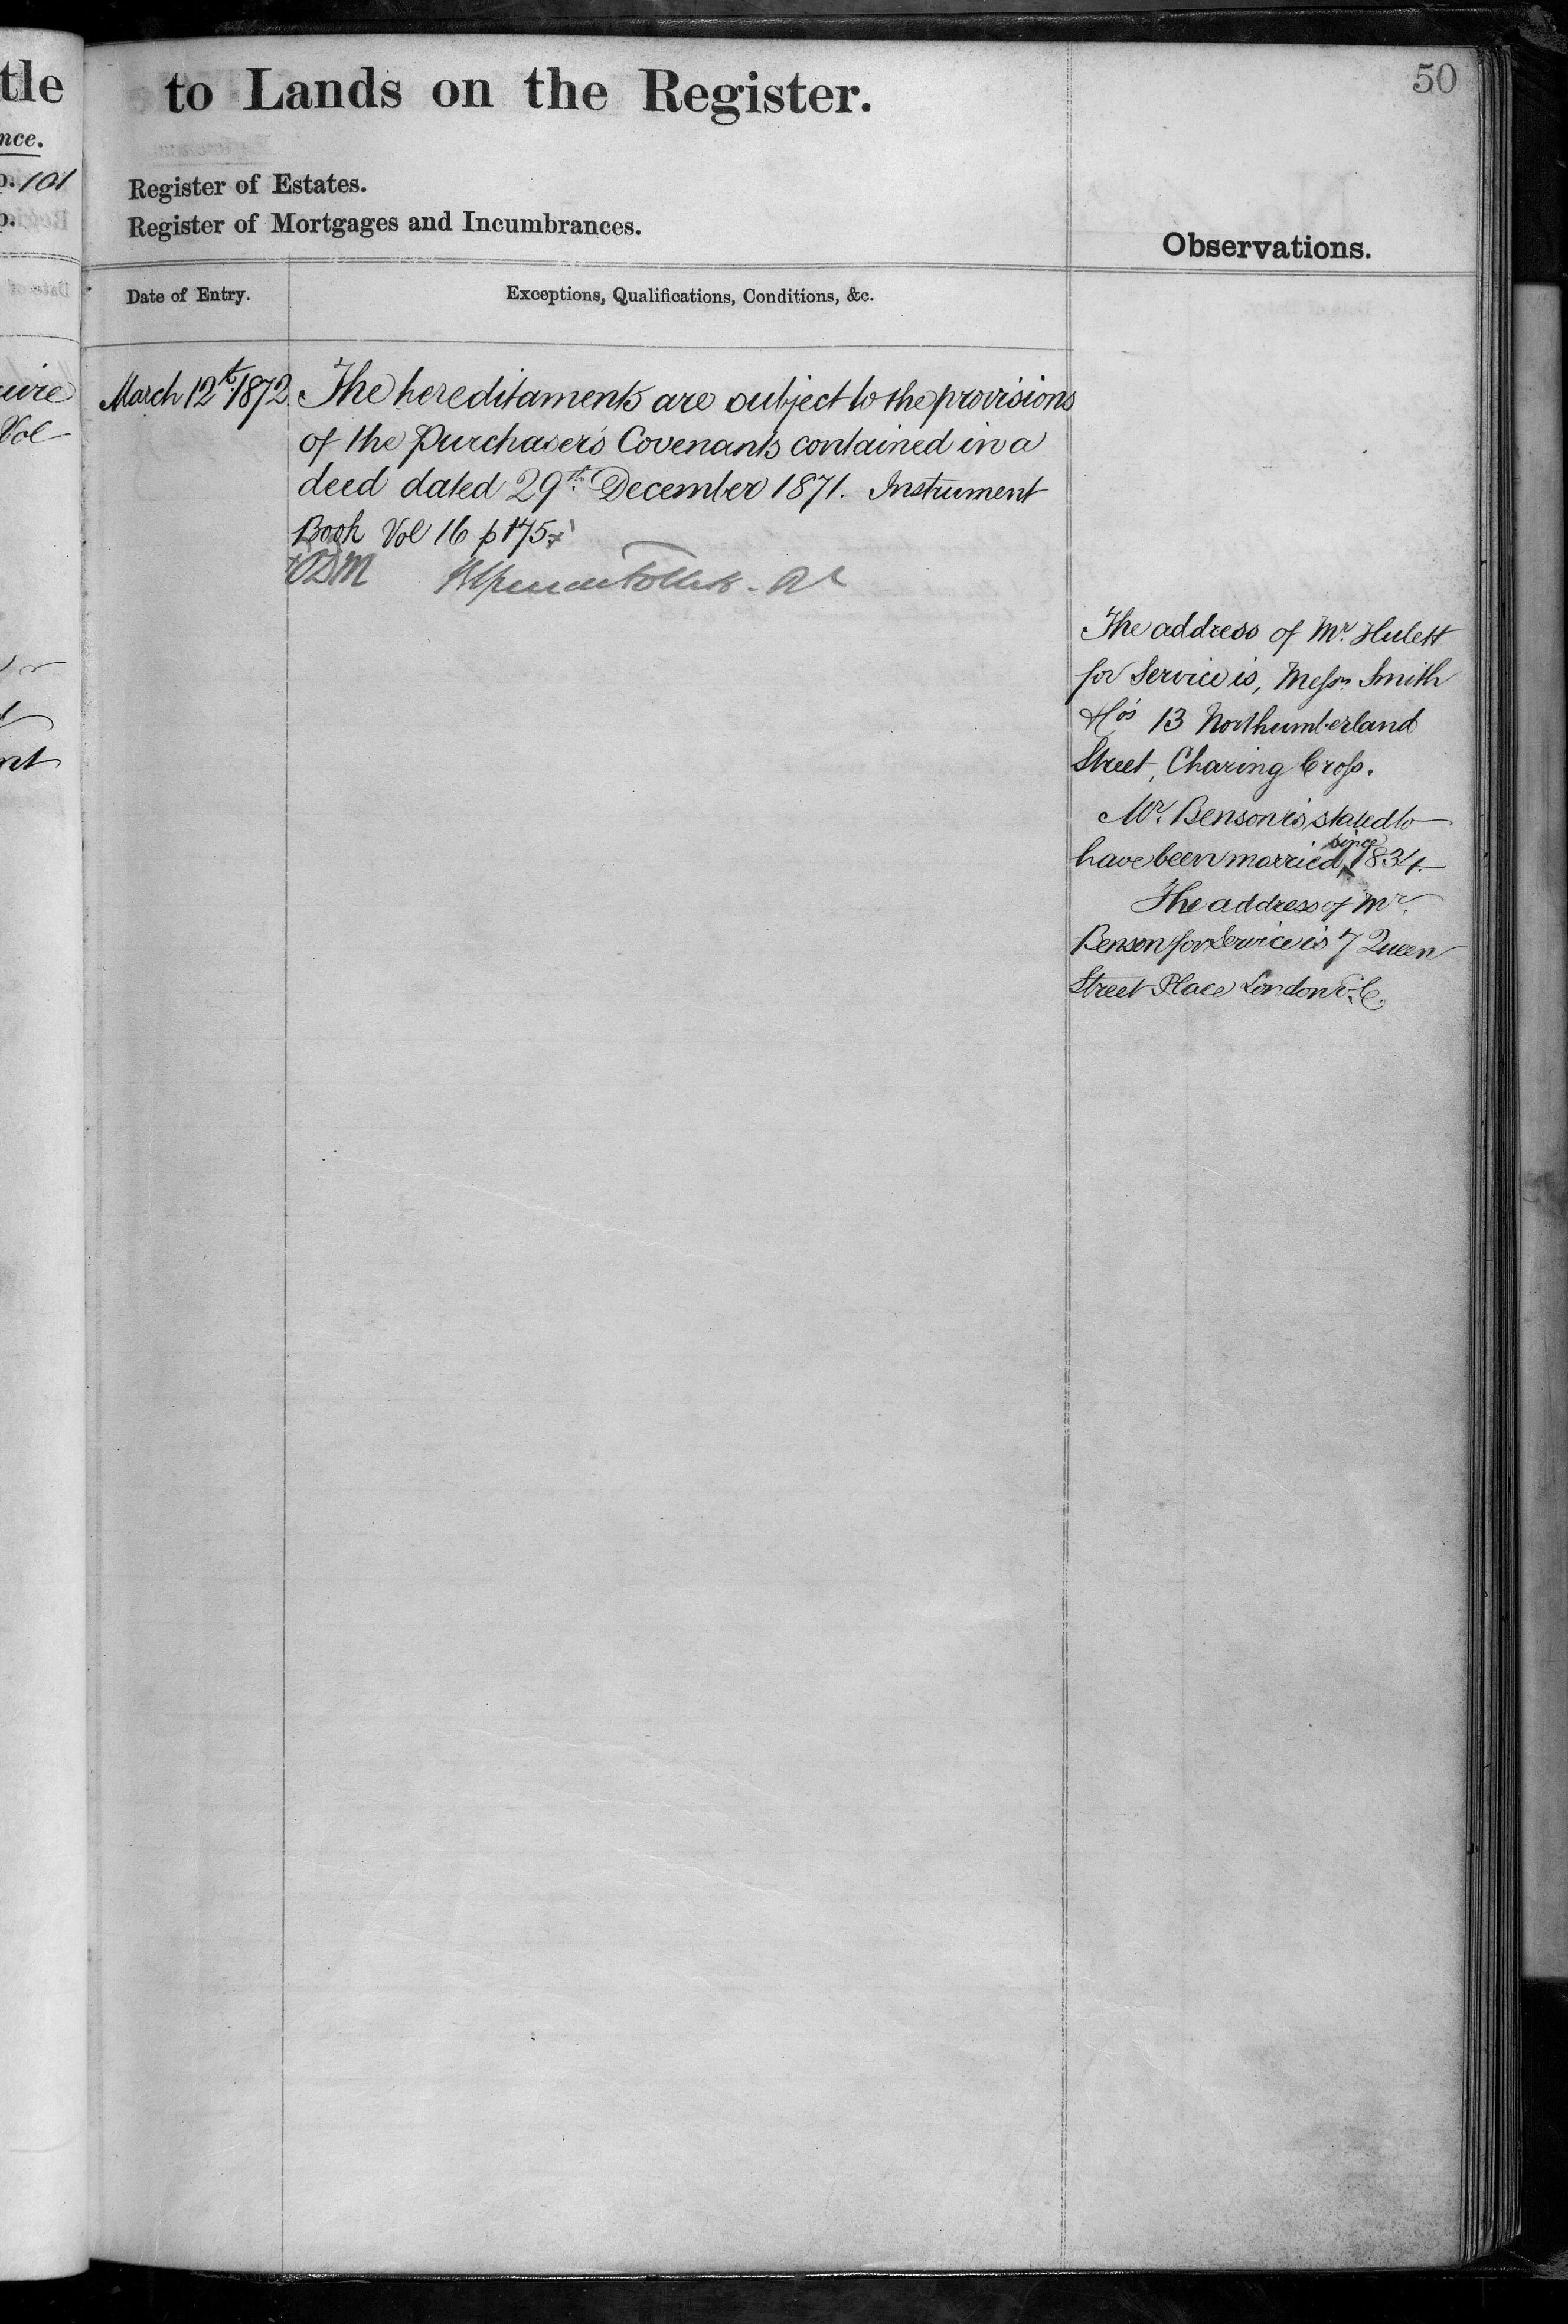 tle
nce.
p. 101
p.
Vol
nt
to Lands on the Register.
50
Register of Estates.
Register of Mortgages and Incumbrances.
Observations.
Date of Entry.
Exceptions, Qualifications, Conditions, &c.
March 12th 1872
The hereditaments are subject to the provisions
of the Purchaser's Covenants contained in a
deed dated 29th December 1871. Instrument
Book Vol 16 p 175
The address of Mr. Hulett
for Service is, Messrs Smith
13 Northumberland
Street, Charing Cross.
Mr. Benson is stated to
have been married since 1834.
The address of Mr.
Benson for Service is 7 Queen
Street Place London E.C.